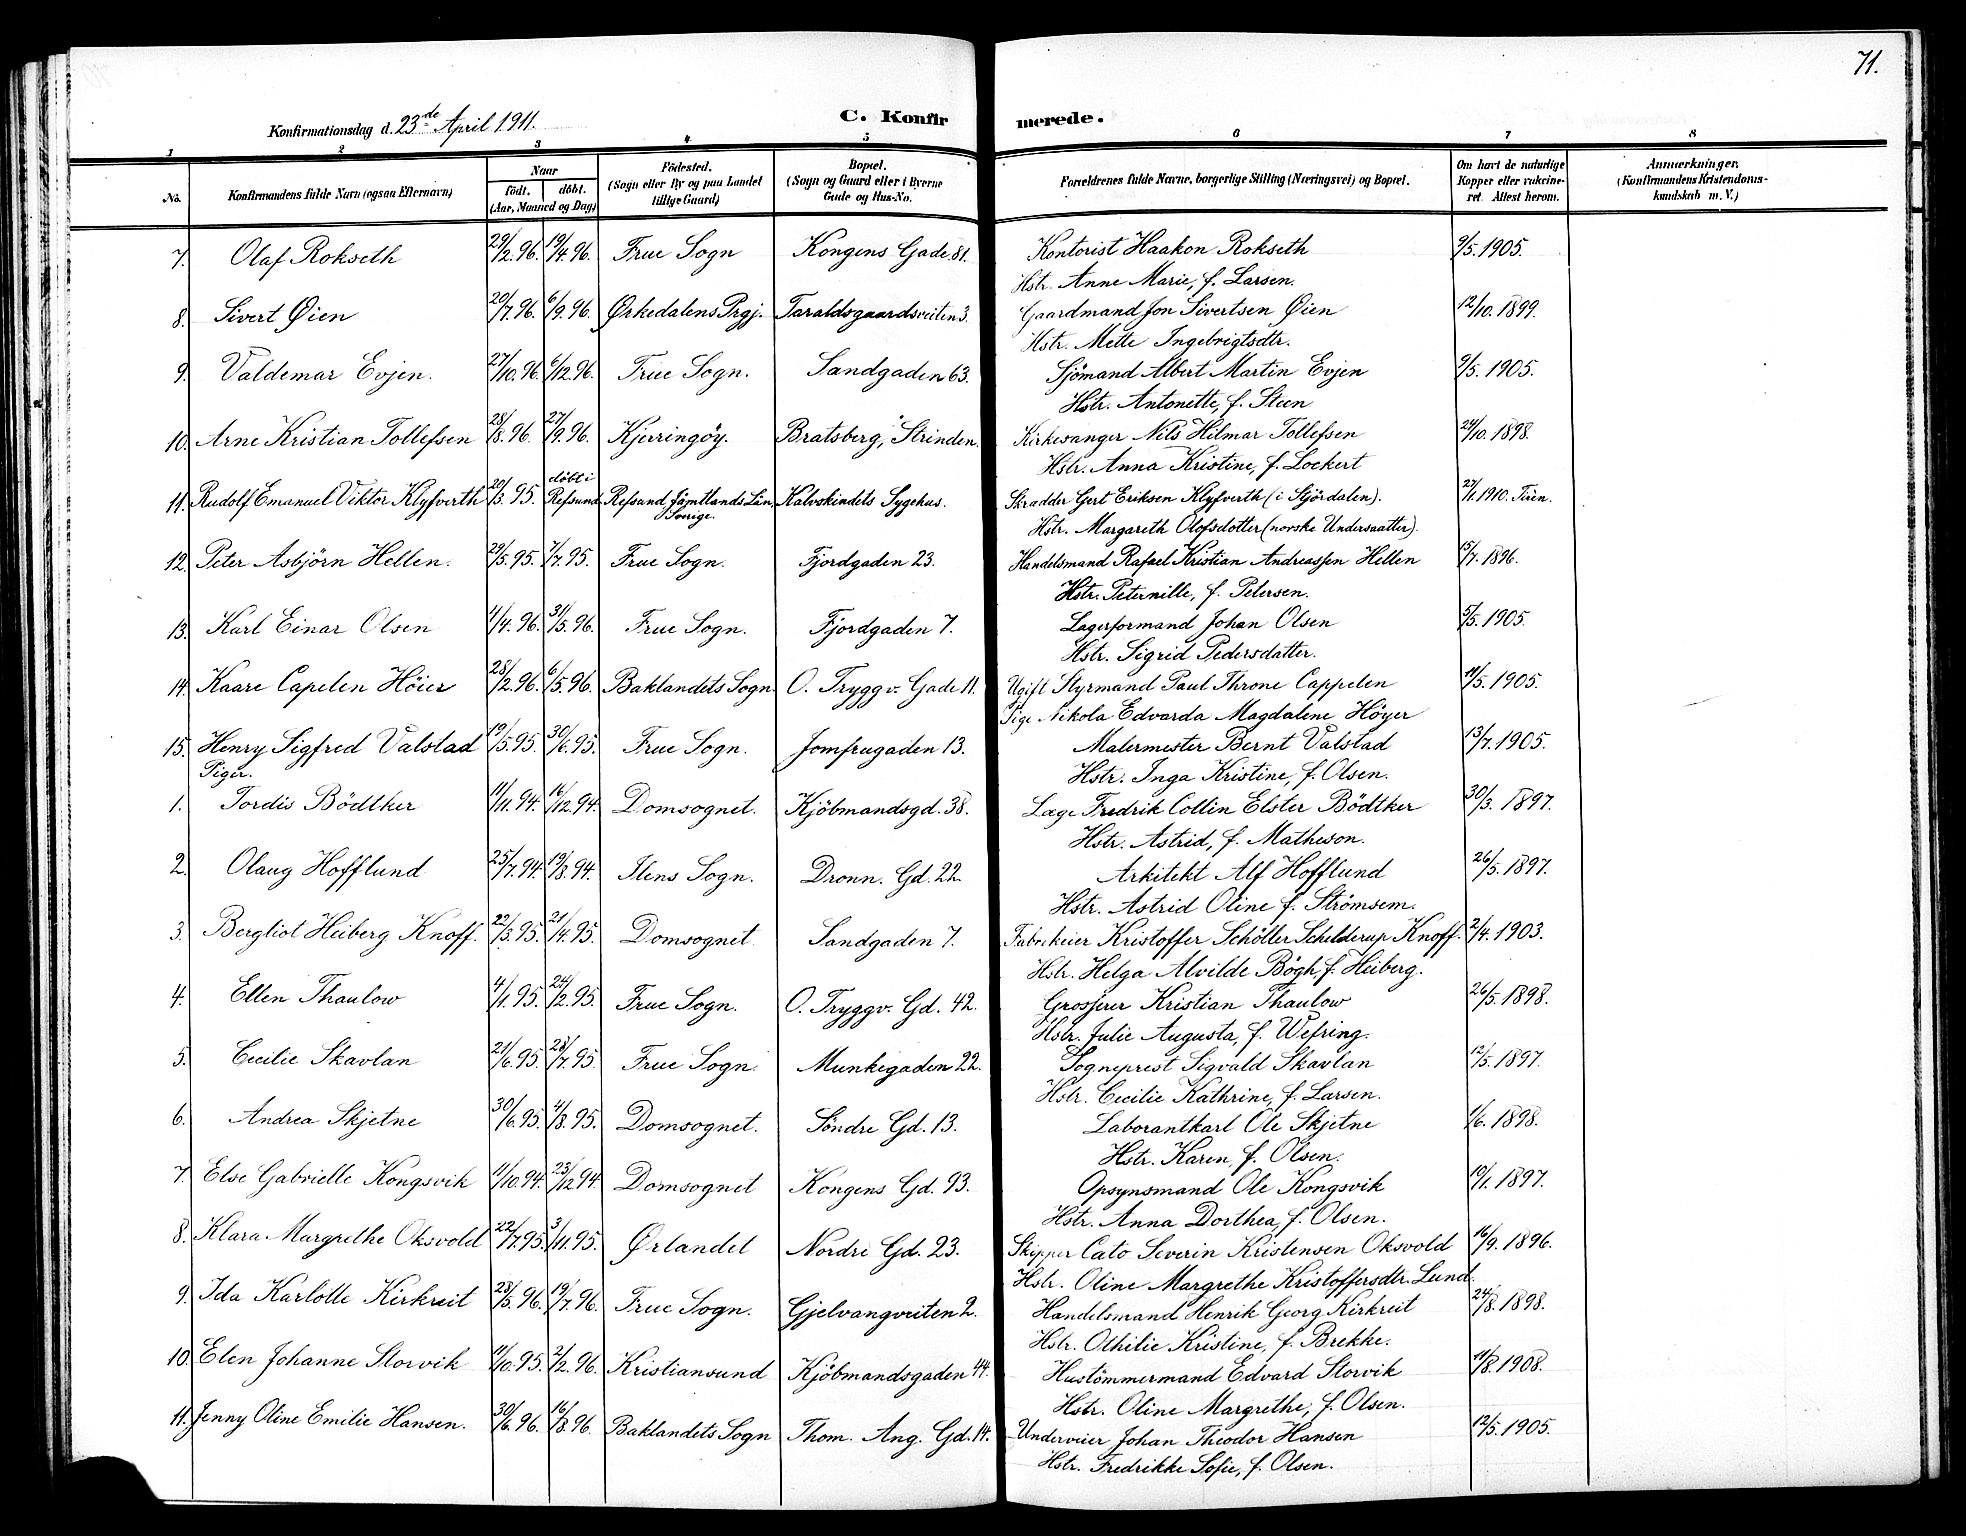 71.
Konfirmationsdag d. 23de April 1911.
C. Konfirmerede.
1 2 3 4 5 6 7 8
No. Konfirmandens fulde Navn (ogsaa Efternavn) Naar født. døbt. (Aar, Maaned og Dag) Fødested. (Sogn eller By og paa Landet tillige Gaard) Bopæl. (Sogn og Gaard eller i Byerne Gade og Hus-No. Forældrenes fulde Navne, borgerlige Stilling (Næringsvei) og Bopæl. Om havt de naturlige Kopper eller vakcineret. Attest herom. Anmærkninger. (Konfirmandens Kristendomskundskab m. V.)
7. Olaf Rokseth 29/2.96. 19/4.96. Frue Sogn Kongens Gade 81. Kontorist Haakon Rokseth 9/5.1905.
Hstr. Anne Marie, f. Larsen.
8. Sivert Øien 20/7.96. 6/9.96. Ørkedalens Prgj. Taraldsgaardsveiten 3. Gaardmand Jon Sivertsen Øien 12/10.1899.
Hstr. Mette Ingebrigtsdtr.
9. Valdemar Evjen. 27/10.96. 6/12.96. Frue Sogn. Sandgaden 63. Sjömand Albert Martin Evjen 9/5.1905.
Hstr. Antonette, f. Steen
10. Arne Kristian Tollefsen 28/8.96. 27/9.96. Kjerringöy. Bratsberg, Strinden. Kirkesanger Nils Hilmar Tollefsen 24/10.1898.
Hstr. Anna Kristine, f. Lockert
11. Rudolf Emanuel Viktor Klyfverth 20/3.95. döbt i Refsund Refsund Jämtlands Län, Sverige. Kalvskindets Sygehus. Skrædder Gert Eriksen Klyfverth (i Stjördalen). 27/1.1910. Tiren.
Hstr. Margareth Olofsdotter (norske Undersaatter).
12. Peter Asbjörn Hellen. 29/5.95. 7/7.95. Frue Sogn. Fjordgaden 23. Handelsmand Rafael Kristian Andreassen Hellen 15/7.1896.
Hstr. Peternille, f. Petersen.
13. Karl Einar Olsen 4/4.96. 31/5.96. Frue Sogn. Fjordgaden 7. Lagerformand Johan Olsen 5/5.1905.
Hstr. Sigrid Pedersdatter.
14. Kaare Capelen Höier 28/2.96. 6/5.96. Baklandets Sogn O. Tryggv. Gade 11. Ugift Styrmand Paul Throne Cappelen 11/5.1905.
Pige Nikola Edvarda Magdalene Höyer
15. Henry Sigfred Valstad 19/5.95. 30/6.95. Frue Sogn. Jomfrugaden 13. Malermester Bernt Valstad 13/7.1905.
Hstr. Inga Kristine, f. Olsen.
Piger.
1. Tordis Bödtker 11/11.94. 16/12.94. Domsognet. Kjöbmandsgd. 38. Læge Fredrik Collin Elster Bödtker 30/3.1897.
Hstr. Astrid, f. Matheson.
2. Olaug Hofflund 25/7.94. 19/8.94. Ilens Sogn. Dronn. Gd. 22. Arkitekt Alf Hofflund 26/5.1897.
Hstr. Astrid Oline f. Strömsem.
3. Bergliot Heiberg Knoff. 22/3.95. 21/4.95. Domsognet. Sandgaden 7. Fabrikeier Kristoffer Schöller Schelderup Knoff. 2/4.1903.
Hstr. Helga Alvilde Bögh f. Heiberg.
4. Ellen Thaulow 4/1.95. 24/2.95. Frue Sogn. O. Tryggv. Gd. 42. Grosserer Kristian Thaulow 26/5.1898.
Hstr. Julie Augusta, f. Wefring.
5. Cecilie Skavlan 21/6.95. 28/7.95. Frue Sogn. Munkegaden 22. Sogneprest Sigvald Skavlan 12/5.1897.
Hstr. Cecilie Kathrine, f. Larsen.
6. Andrea Skjetne 30/6.95. 4/8.95. Domsognet. Söndre Gd. 13. Laborantkarl Ole Skjetne 1/6.1898.
Hstr. Karen, f. Olsen.
7. Else Gabrielle Kongsvik 11/10.94. 23/12.94. Domsognet Kongens Gd. 93. Opsynsmand Ole Kongsvik 19/1.1897.
Hstr. Anna Dorthea, f. Olsen.
8. Klara Margrethe Oksvold 22/7.95. 3/11.95. Ørlandet Nordre Gd. 23. Skipper Cato Severin Kristensen Oksvold 16/9.1896.
Hstr. Oline Margrethe Kristoffersdtr. Lund.
9. Ida Karlotte Kirkreit 28/5.96. 19/7.96. Frue Sogn. Gjelvangveiten 2. Handelsmand Henrik Georg Kirkreit 24/8.1898.
Hstr. Othilie Kristine, f. Brekke.
10. Elen Johanne Storvik 11/10.95. 2/2.96. Kristiansund Kjöbmandsgaden 44. Hustömmermand Edvard Storvik 11/8.1908.
Hstr. Oline Margrethe, f. Olsen.
11. Jenny Oline Emilie Hansen. 30/6.96. 16/8.96. Baklandets Sogn Thom. Ang. Gd. 14. Underveier Johan Theodor Hansen 12/5.1905.
Hstr. Fredrikke Sofie, f. Olsen.